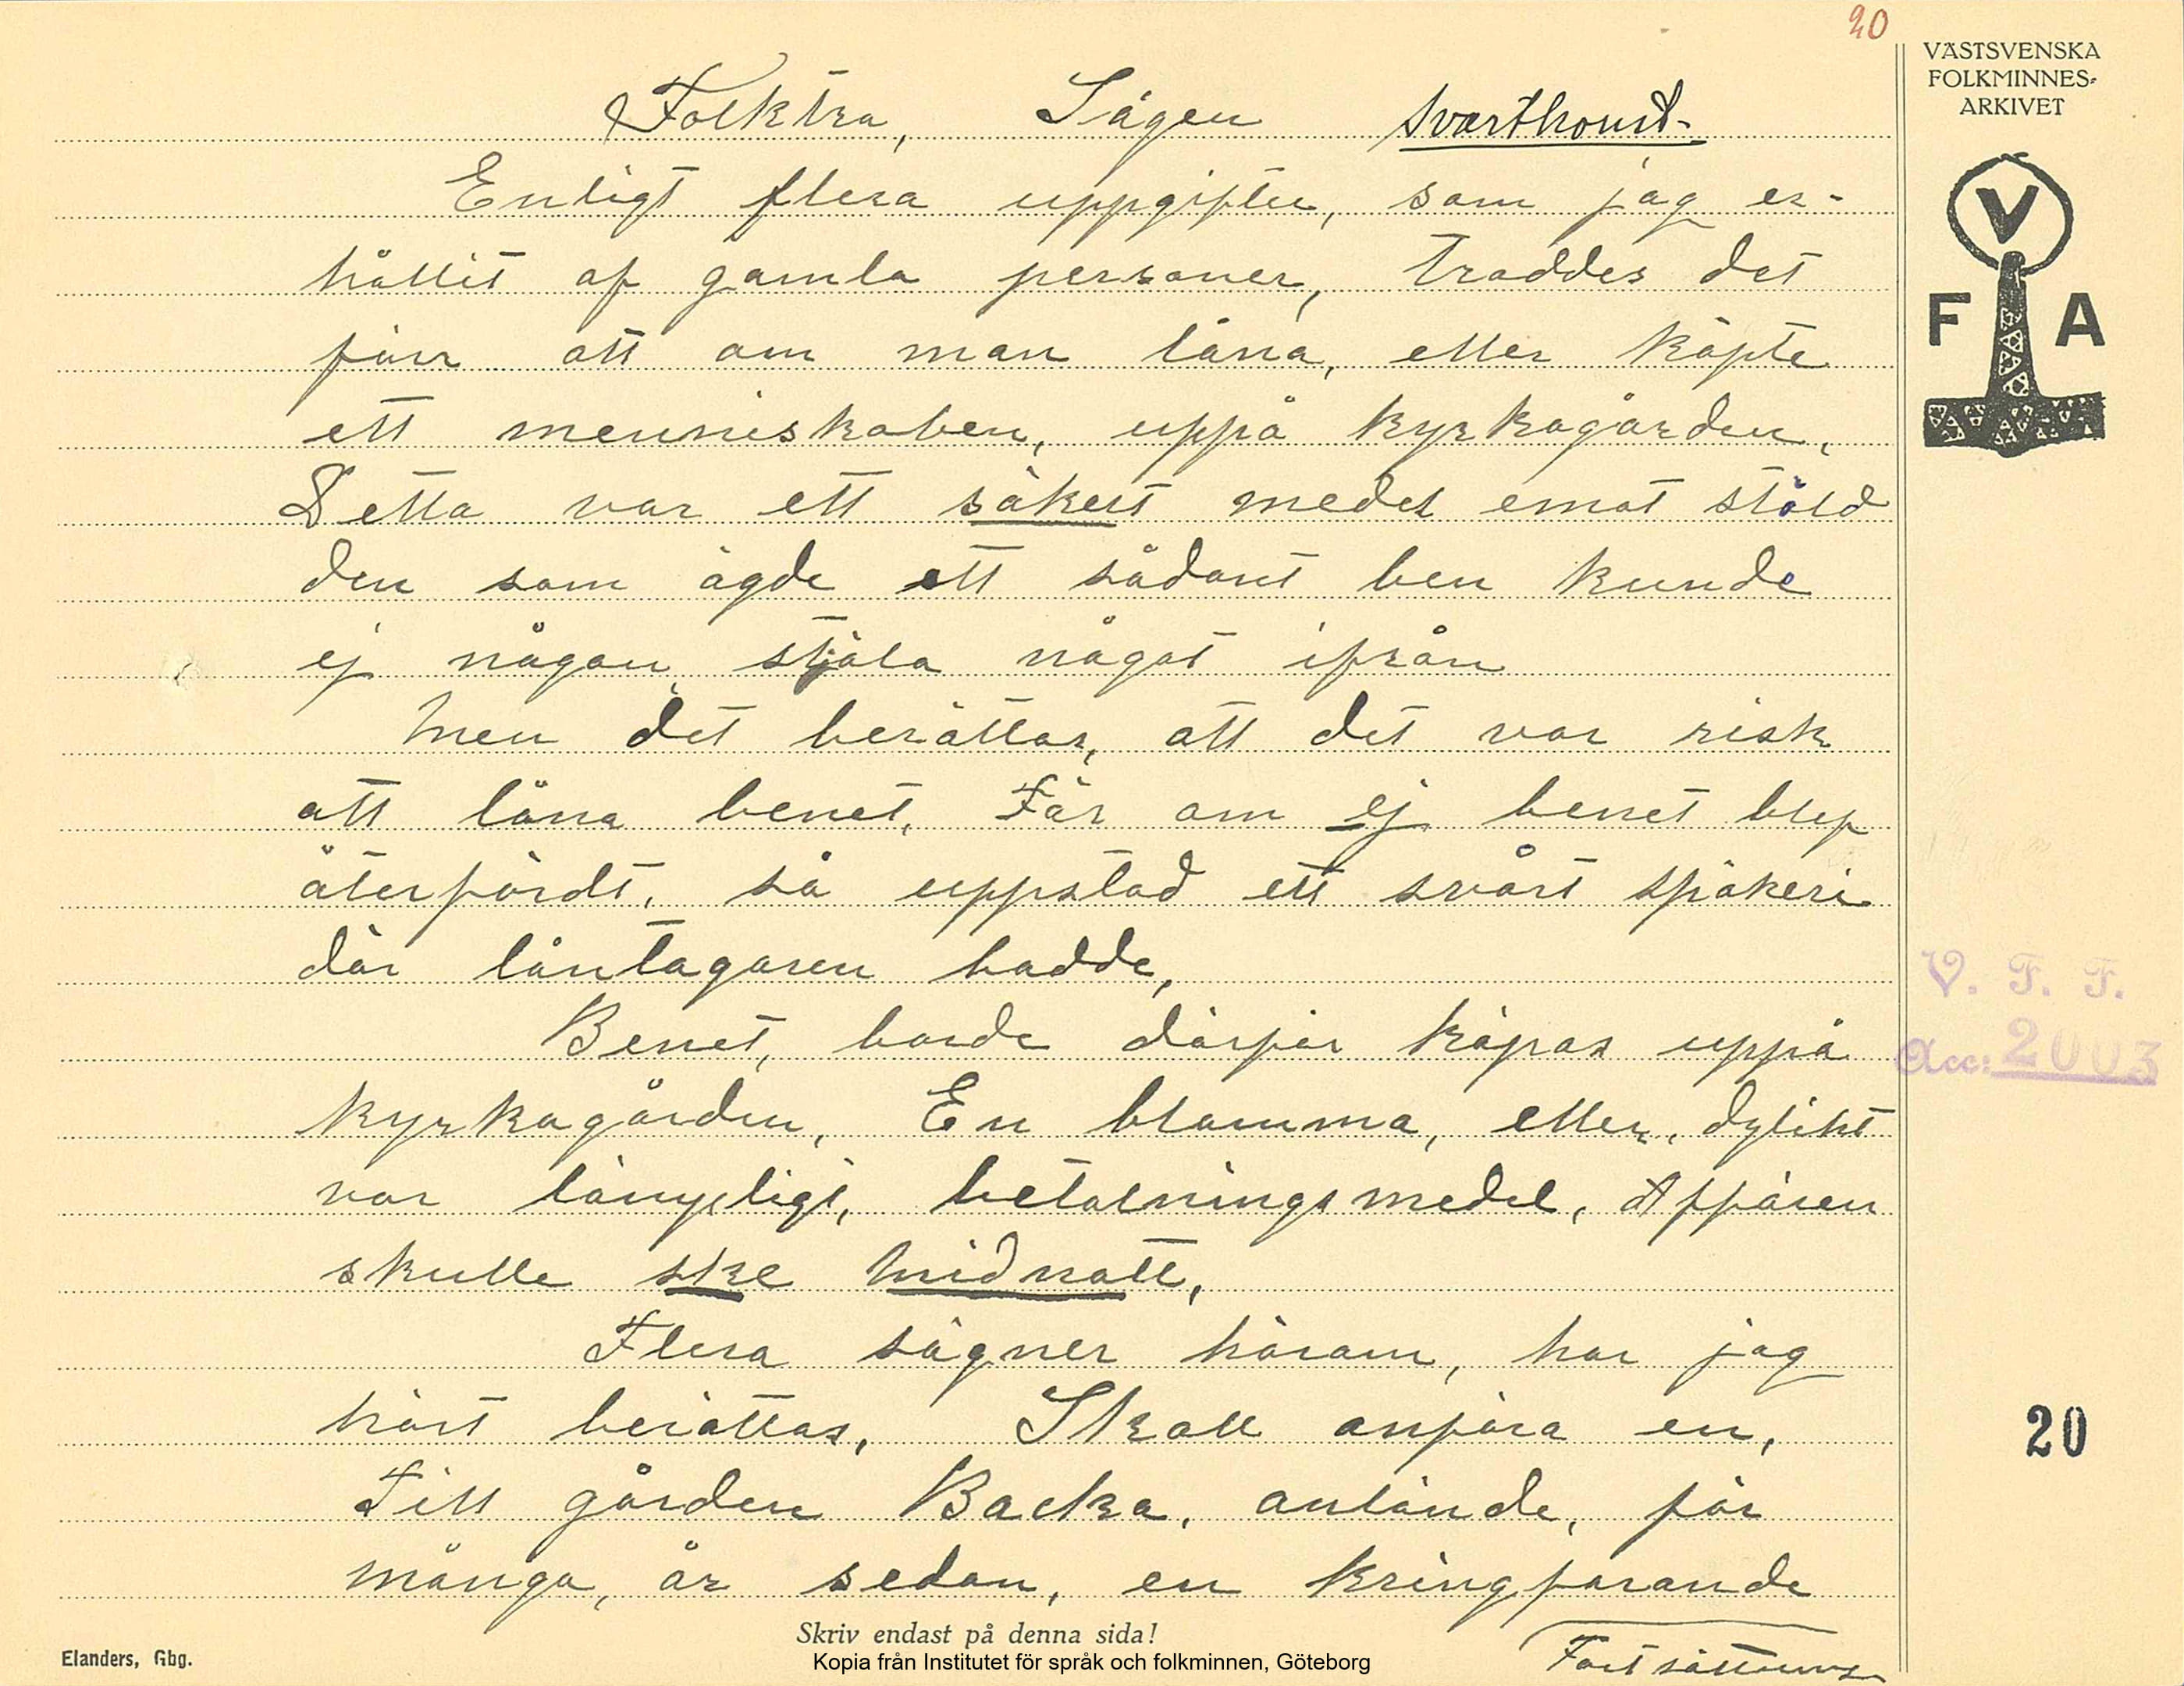 20
VÄSTSVENSKA
FOLKMINNES-
ARKIVET
Folktra, Sägen svartkonst.
V
F A
Enligt flera uppgifter, som jag er-
hållit af gamla personer, troddes det
förr att om man låna, eller köpte
ett menniskoben, uppå kyrkogården,
Detta var ett säkert medel emot stöld
den som ägde ett sådant ben kunde
ej någon stjäla något ifrån
Men det berättas, att det var risk
att låna benet. För om ej benet blef
återfördt, så uppstod ett svårt spökeri
där låntagaren bodde,
V. F. F.
Benet, borde därför köpas uppå
Acc: 2003
kyrkogården, En blomma, eller, dylikt
var lämpligt, betalningsmedel, Affären
skulle ske midnatt,
Flera sägner härom, har jag
hört berättas, Skall anföra en,
20
Till gården Backa, anlände, för
många, år sedan, en kringfarande
Skriv endast på denna sida!
Elanders, Gbg.
Kopia från Institutet för språk och folkminnen, Göteborg